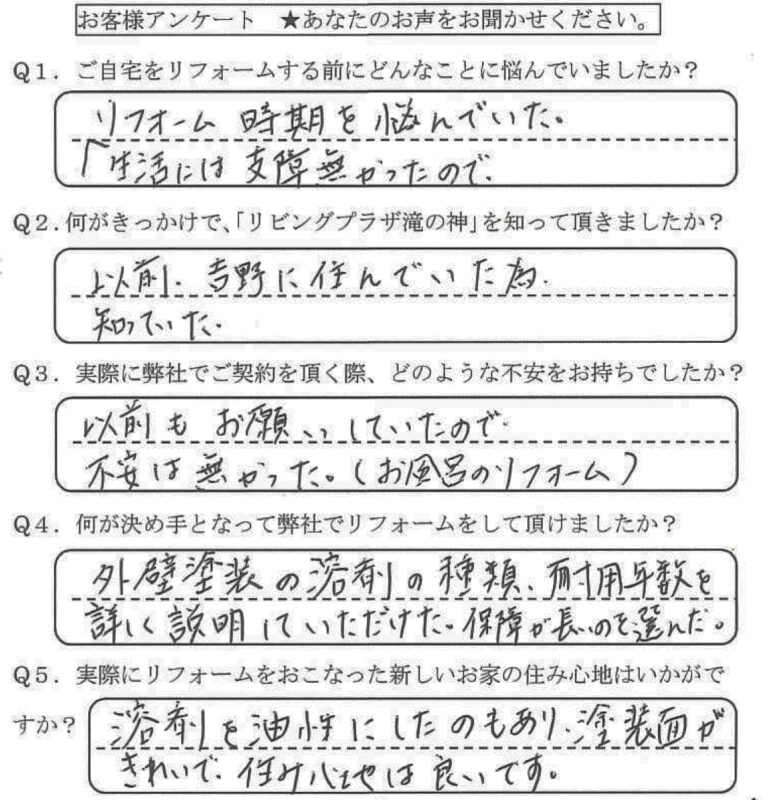 お客様アンケート　★あなたのお声をお聞かせください。
Q1．ご自宅をリフォームする前にどんなことに悩んでいましたか？
リフォーム 時期を悩んでいた。
生活には支障無かったので、
Q2．何がきっかけで、「リビングプラザ滝の神」を知って頂きましたか？
以前、吉野に住んでいた為、
知っていた。
Q3．実際に弊社でご契約を頂く際、どのような不安をお持ちでしたか？
以前もお願いしていたので、
不安は無かった。（お風呂のリフォーム）
Q4．何が決め手となって弊社でリフォームをして頂けましたか？
外壁塗装の溶剤の種類、耐用年数を
詳しく説明していただけた。保障が長いのを選んだ。
Q5．実際にリフォームをおこなった新しいお家の住み心地はいかがで
すか？
溶剤を油性にしたのもあり、塗装面が
きれいで、住み心地は良いです。